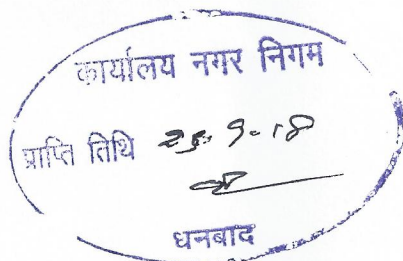 कार्यालय नगर निगम
प्राप्ति तिथि 25-9-18
धनबाद